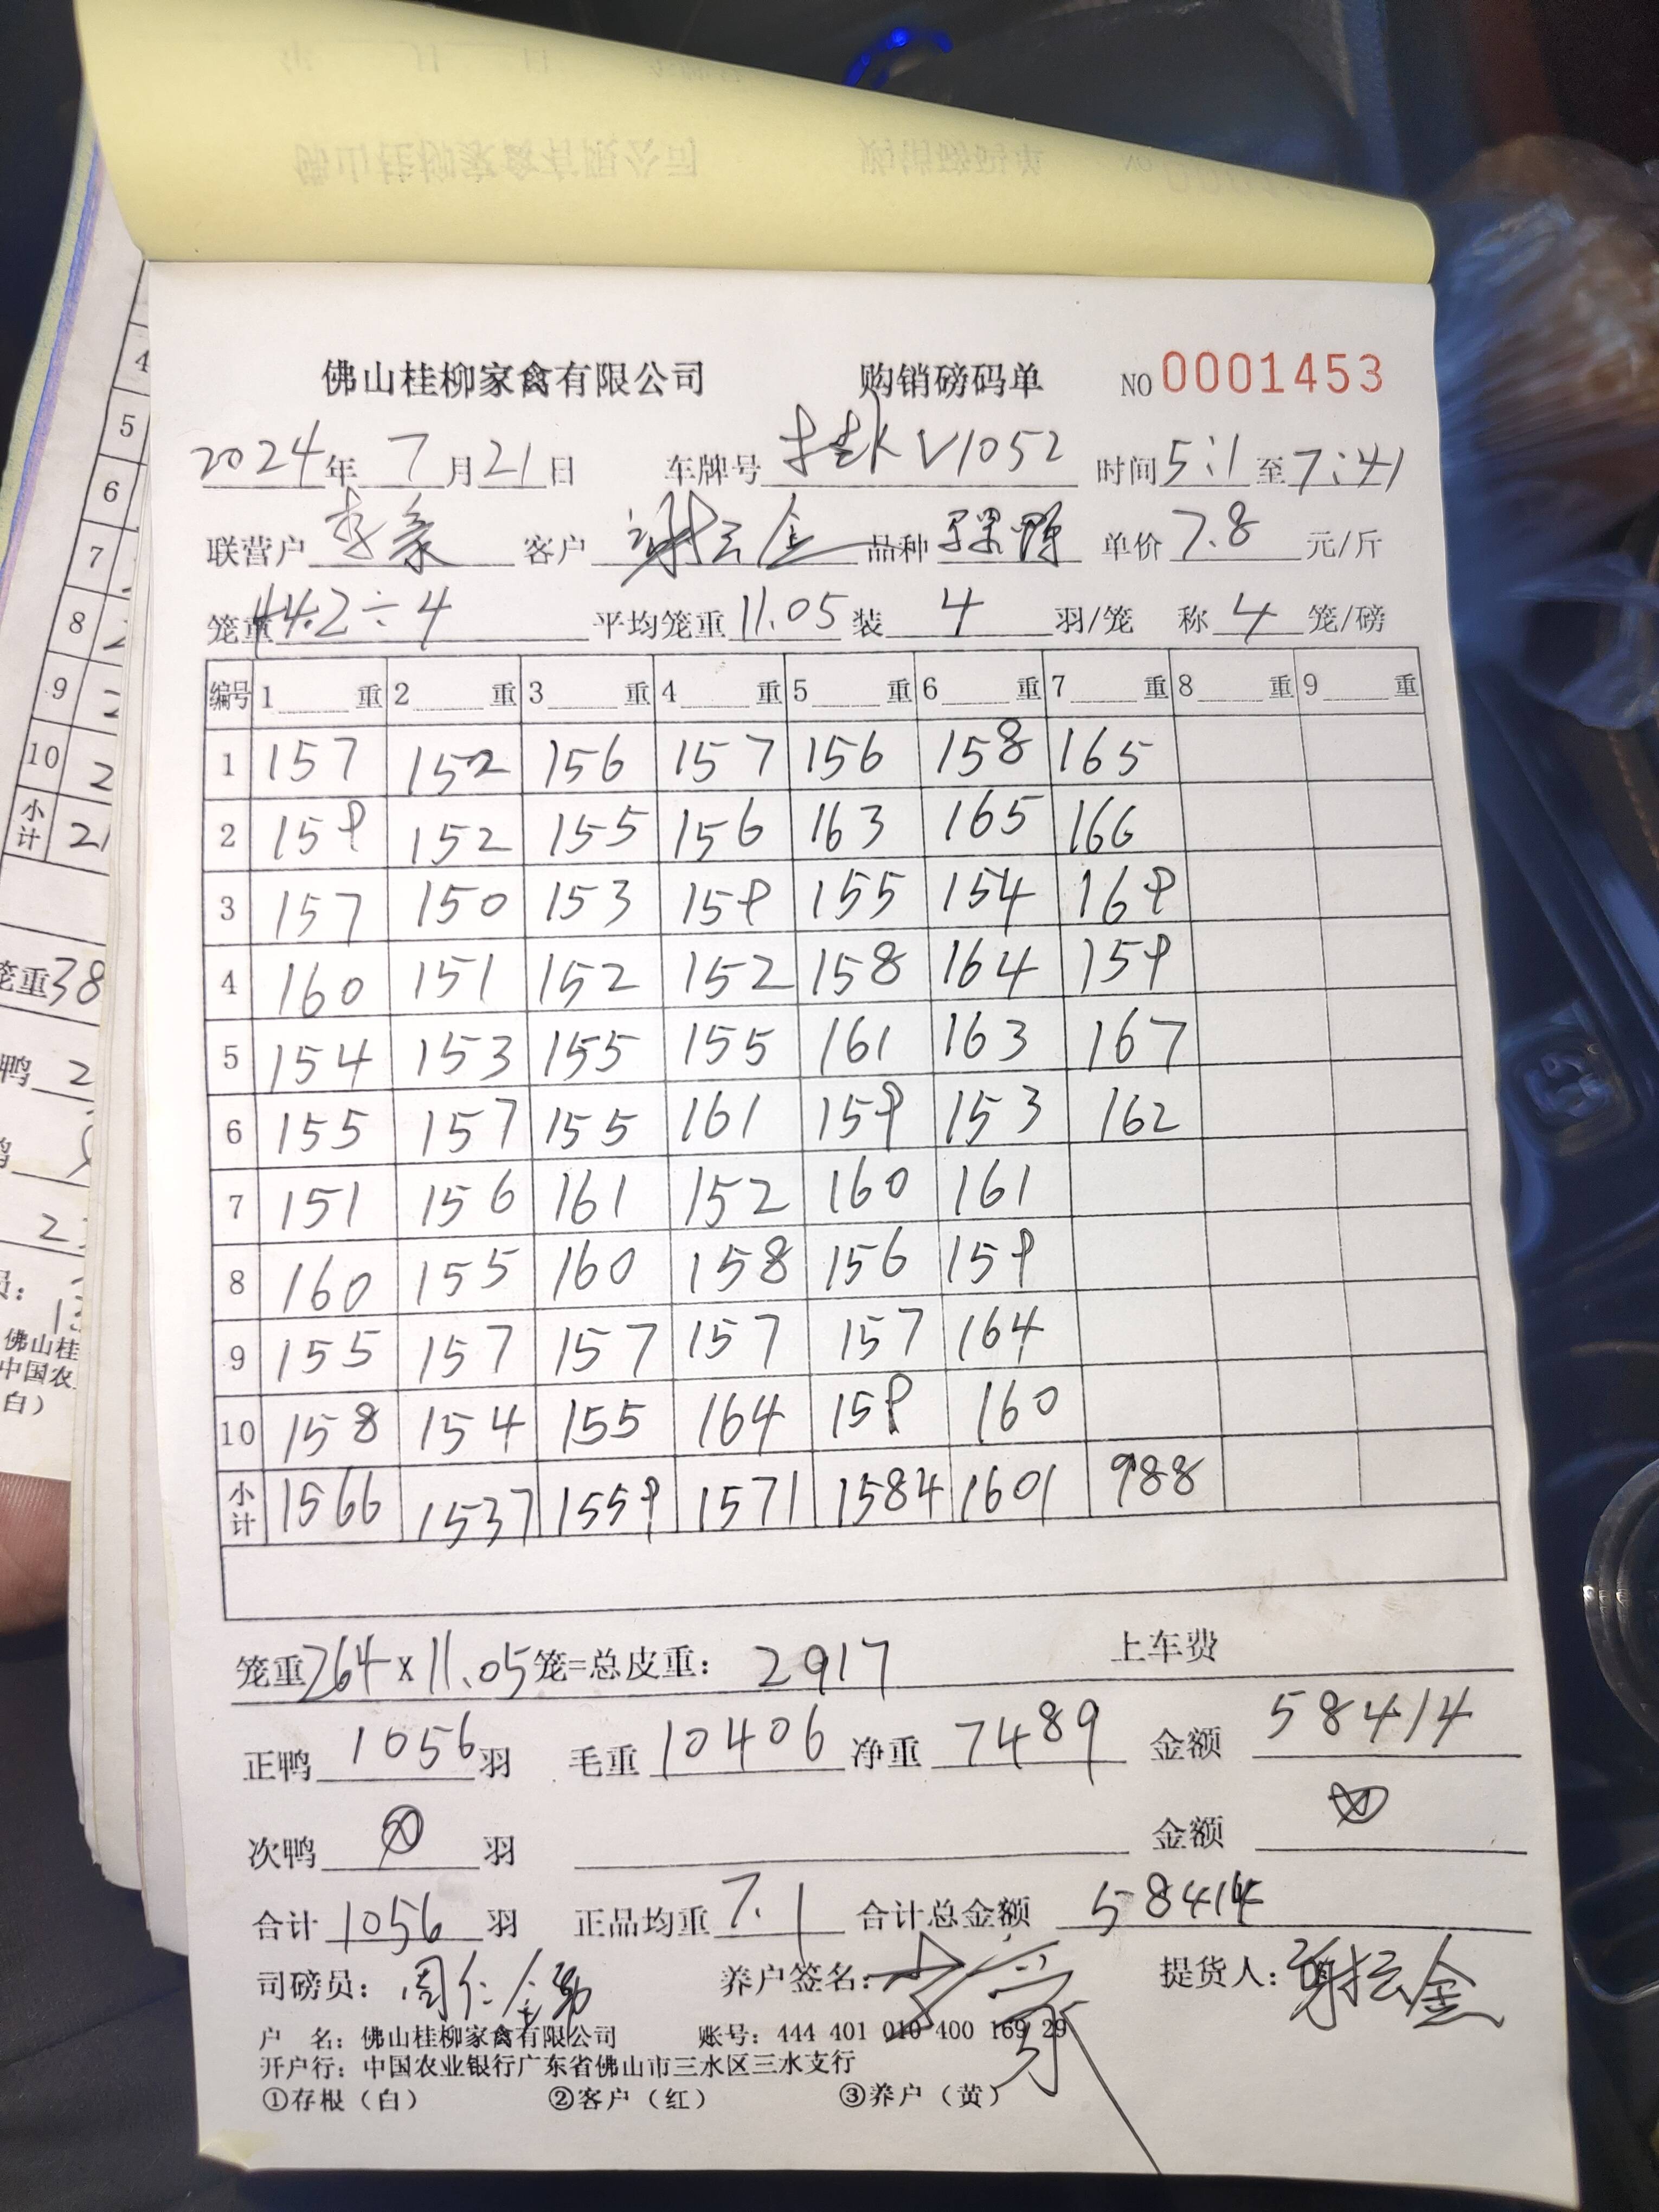 佛山桂柳家禽有限公司 购销磅码单 NO 0001453
2024年 7月21日 车牌号 V1052 时间 5:1 至 7:41
联营户 李 客户 谢 金 品种 鸭 单价 7.8 元/斤
笼重 44.2÷4 平均笼重 11.05 装 4 羽/笼 称 4 笼/磅
编号 1 重 2 重 3 重 4 重 5 重 6 重 7 重 8 重 9 重
1 157 152 156 157 156 158 165
2 159 152 155 156 163 165 166
3 157 150 153 159 155 154 169
4 160 151 152 152 158 164 159
5 154 153 155 155 161 163 167
6 155 157 155 161 159 153 162
7 151 156 161 152 160 161
8 160 155 160 158 156 159
9 155 157 157 157 157 164
10 158 154 155 164 159 160
小计 1566 1537 1559 1571 1584 1601 988
笼重 264 x 11.05 笼=总皮重: 2917 上车费
正鸭 1056 羽 毛重 10406 净重 7489 金额 58414
次鸭 羽 金额
合计 1056 羽 正品均重 7.1 合计总金额 58414
司磅员: 周仁 养户签名: 提货人: 谢 金
户 名: 佛山桂柳家禽有限公司 账号: 444 401 010 400 169 29
开户行: 中国农业银行广东省佛山市三水区三水支行
①存根(白) ②客户(红) ③养户(黄)
4
5
6
7
8
9
10 2
小计 21
笼重38
鸭 2
佛山桂
中国农
白)